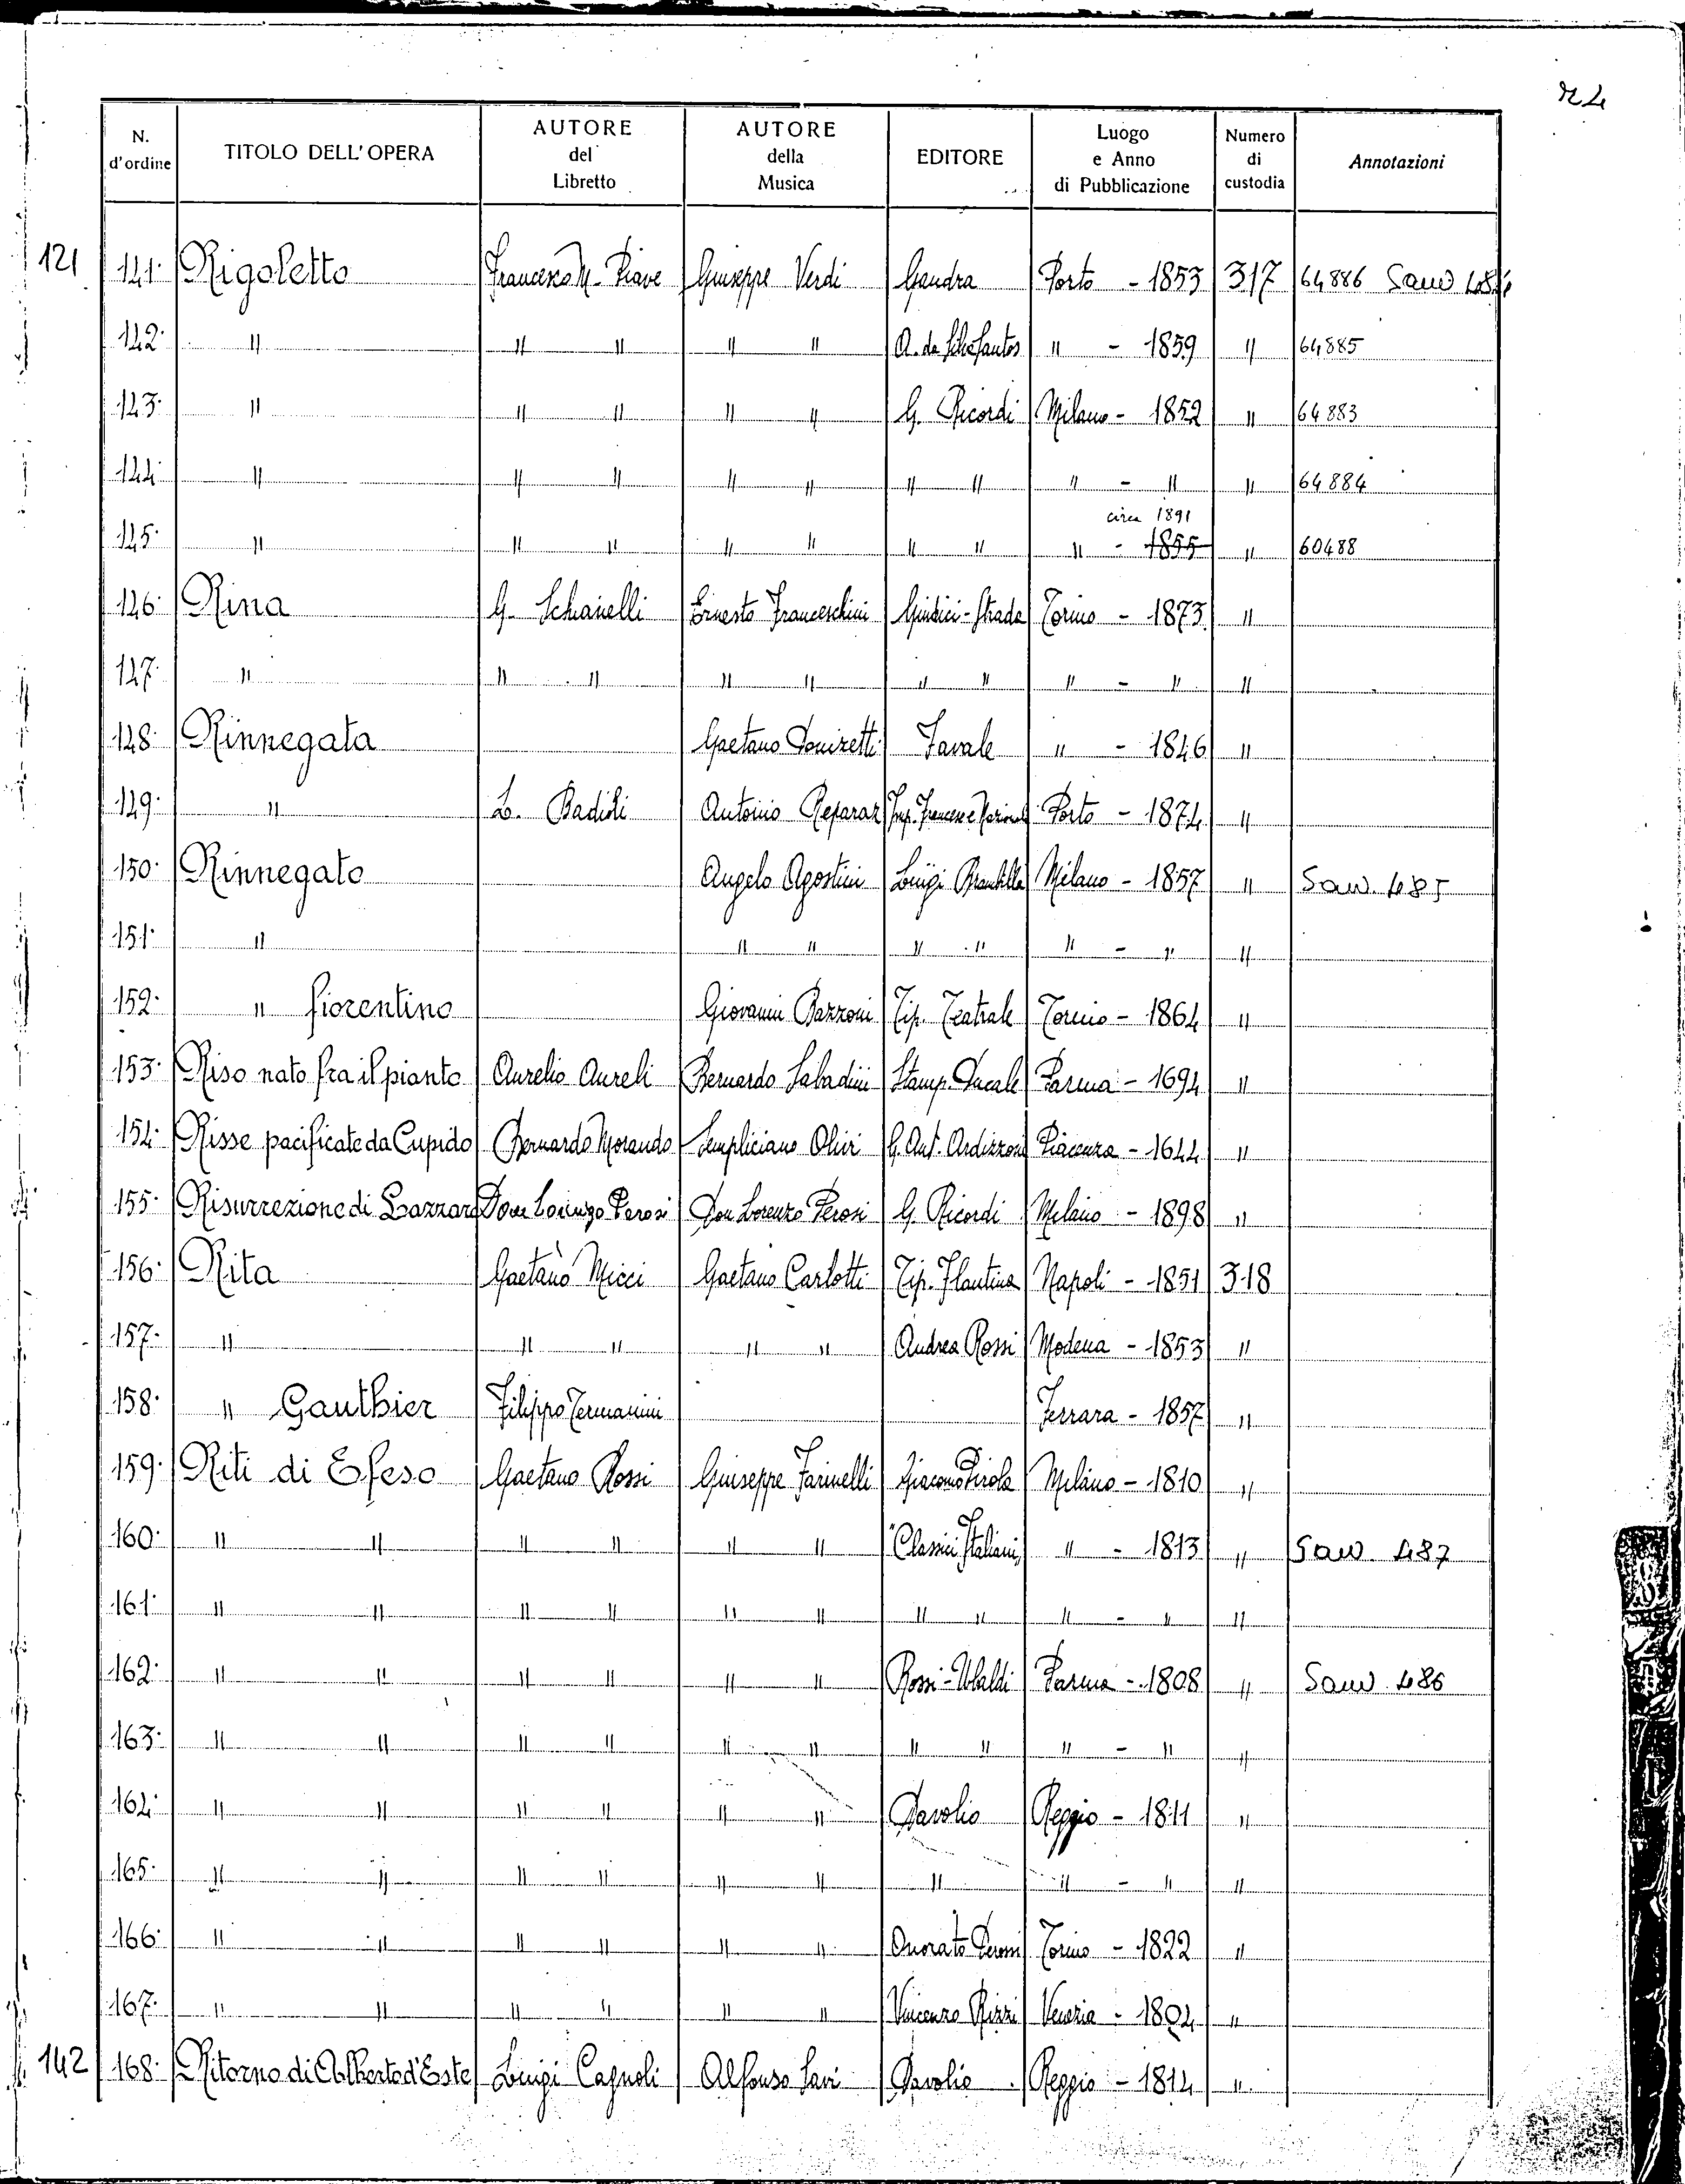 N. d'ordine TITOLO DELL'OPERA AUTORE del Libretto AUTORE della Musica EDITORE Luogo e Anno di Pubblicazione Numero di custodia Annotazioni
121 141. Rigoletto Francesco M. Piave Giuseppe Verdi Gandra Porto - 1853 317 64886 Saw
142. " " " " " " - 1859 " 64885
143. " " " " " G. Ricordi Milano - 1852 " 64883
144. " " " " " " " " - " " 64884
circa 1891
145. " " " " " " " " - 1855 " 60488
146. Rina G. Ernesto Franceschini Giudici-Strada Torino - 1873 "
147. " " " " " " " " - " "
148. Rinnegata Gaetano Donizetti Favale " - 1846 "
149. " L. Badioli Antonio Reparaz Porto - 1874 "
150. Rinnegato Angelo Agostini Luigi Brambilla Milano - 1857 " Saw. 485
151. " " " " " " - " "
152. " fiorentino Giovanni Bazzoni Tip. Teatrale Torino - 1864 "
153. Riso nato fra il pianto Aurelio Aureli Bernardo Sabadini Stamp. Ducale Parma - 1694 "
154. Risse pacificate da Cupido Bernardo Morando Sempliciano Olivi G. Ant. Ardizzoni Piacenza - 1644 "
155. Risurrezione di Lazzaro Don Lorenzo Perosi Don Lorenzo Perosi G. Ricordi Milano - 1898 "
156. Rita Gaetano Micci Gaetano Carlotti Tip. Flautina Napoli - 1851 318
157. " " " " " Andrea Rossi Modena - 1853 "
158. " Gauthier Filippo Termanini Ferrara - 1857 "
159. Riti di Efeso Gaetano Rossi Giuseppe Farinelli Giacomo Pirola Milano - 1810 "
160. " " " " " " Classici Italiani " - 1813 " Saw 487
161. " " " " " " " " " - " "
162. " " " " " " Rossi-Ubaldi Parma - 1808 " Saw 486
163. " " " " " " " " " - " "
164. " " " " " " Davolio Reggio - 1811 "
165. " " " " " " " " - " "
166. " " " " " " Onorato Derossi Torino - 1822 "
167. " " " " " " Vincenzo Rizzi Venezia - 1804 "
142 168. Ritorno di Alberto d'Este Luigi Cagnoli Alfonso Savi Davolio Reggio - 1814 "